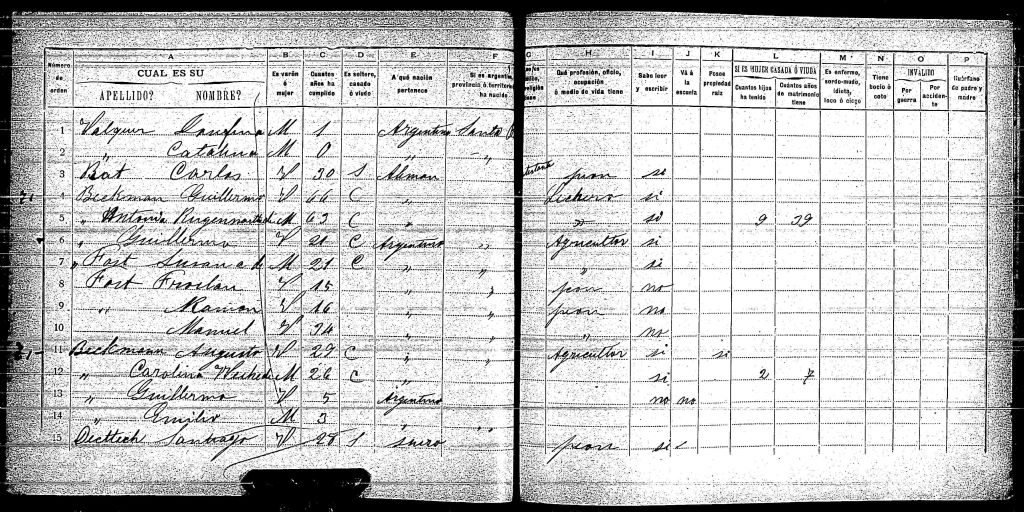 A B C D E F G H I J K L M N O P
Número de orden
CUAL ES SU
APELLIDO? NOMBRE?
Es varón ó mujer
Cuantos años ha cumplido
Es soltero, casado ó viudo
A qué nación pertenece
Si es argentino, provincia ó territorio ha nacido
religión tiene
Qué profesión, oficio, ocupación, ó medio de vida tiene
Sabe leer y escribir
Vá á la escuela
Posee propiedad raíz
SI ES MUJER CASADA Ó VIUDA
Cuántos hijos ha tenido
Cuántos años de matrimonio tiene
Es enfermo, sordo-mudo, idiota, loco ó ciego
Tiene bocio ó coto
INVÁLIDO
Por guerra
Por accidente
Huérfano de padre y madre
1 M 1 Argentino Santa
2 " Catalina M 0 " "
3 Bat Carlos V 30 S Alman peon si
4 Beckman Guillermo V 66 C " Lechero si
5 " Antonia M 63 C " " si 9 39
6 " Guillermo V 21 C Argentino " Agricultor si
7 " Fost Susana M 21 C " " " si
8 Fost Froilan V 15 " " peon no
9 " Ramon V 16 " " peon no
10 Manuel V 34 " " " no
11 Beckmann Augusto V 29 C " " Agricultor si si
12 " Carolina M 26 C " si 2 7
13 " Guillermo V 5 Argentino no no
14 " Emilio M 3 " "
15 Santiago V 28 S suero peon si